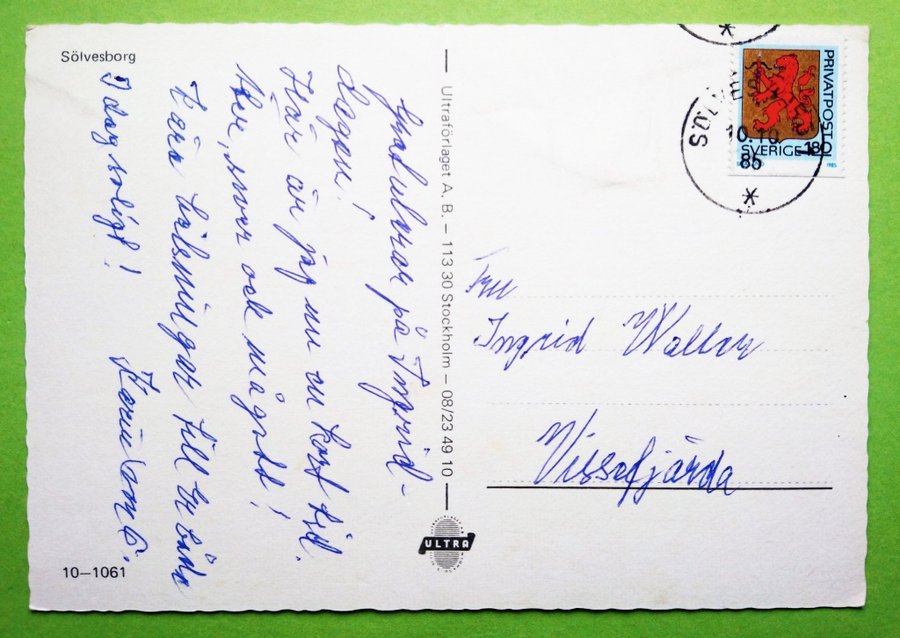 Sölvesborg
Gratulerar på Ingrid-
dagen!
Här är jag nu en kort tid.
äter, sover och mår gott!
Kära hälsningar till Er båda
I dag soligt!
Karin
10-1061
Ultraförlaget A. B. – 113 30 Stockholm – 08/23 49 10
ULTRA
PRIVATPOST
SVERIGE 180
1985
10.10
85
Fru
Ingrid Waller
Vissefjärda